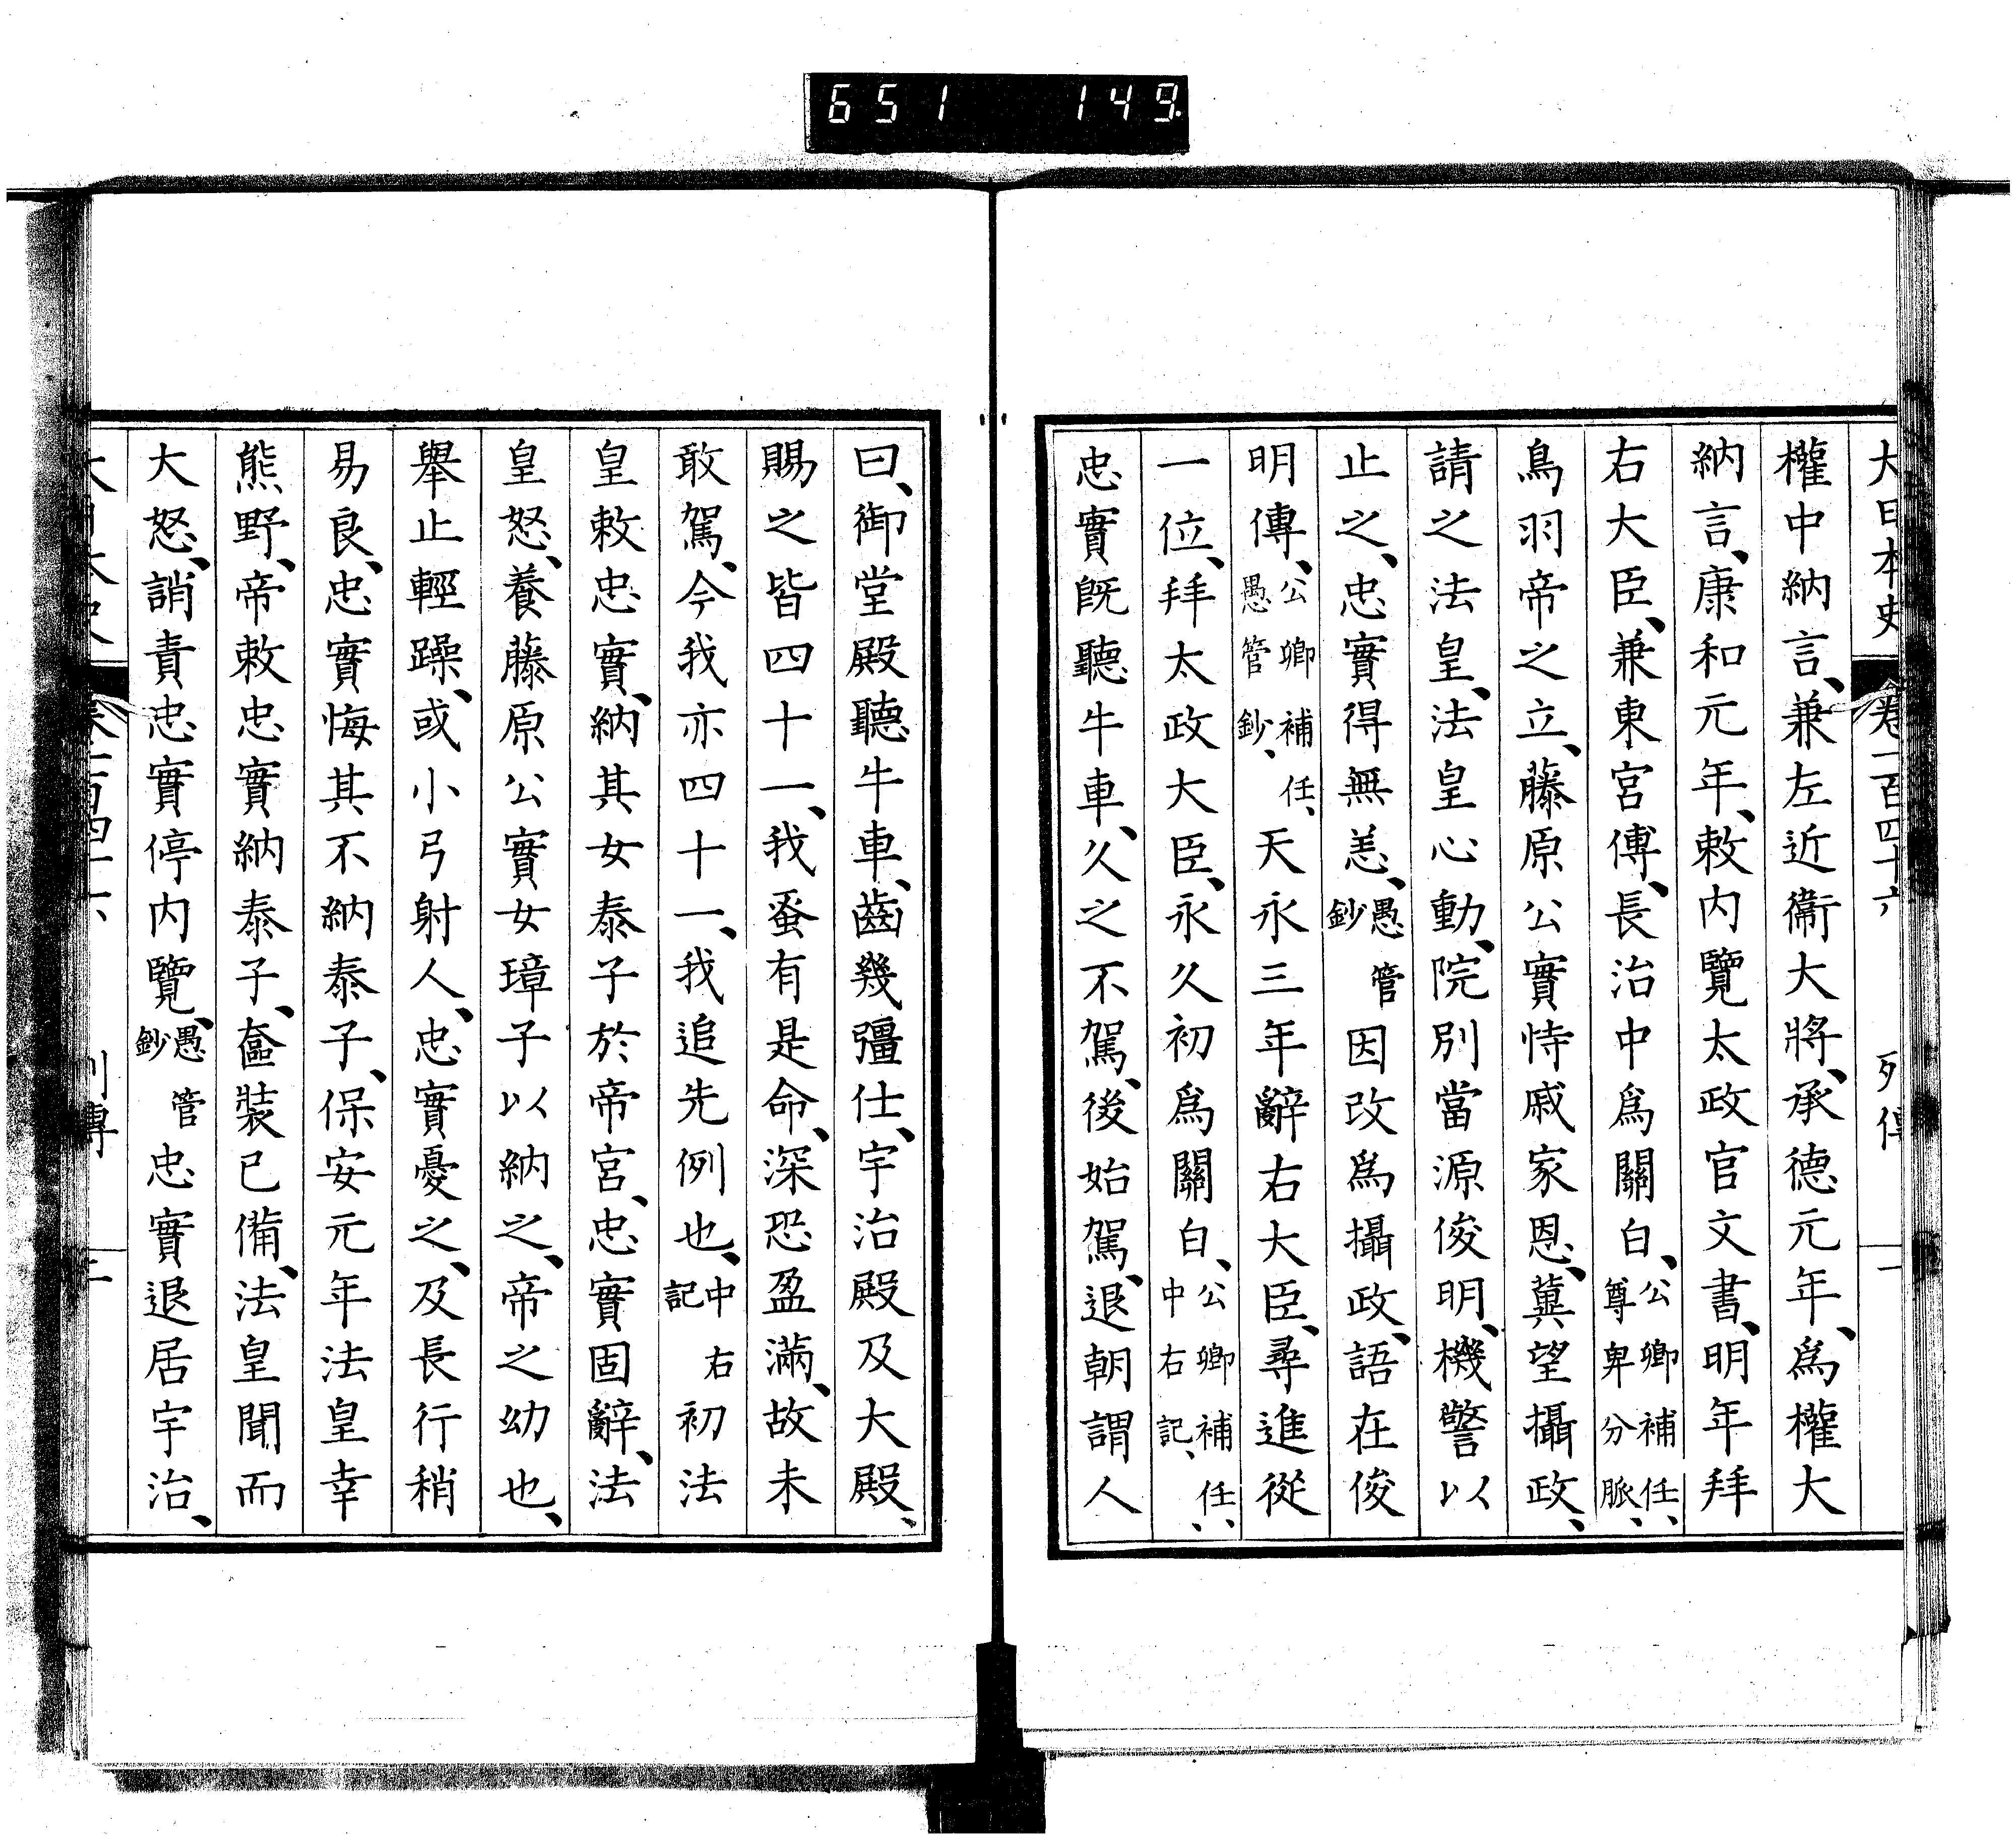 651 149.
大日本史 卷一百四十六 列傳 一
權中納言、兼左近衞大將、承德元年、爲權大
納言、康和元年、敕內覽太政官文書、明年拜
右大臣、兼東宮傅、長治中爲關白、公卿補任、尊卑分脈、
鳥羽帝之立、藤原公實恃戚家恩、冀望攝政、
請之法皇、法皇心動、院別當源俊明、機警以
止之、忠實得無恙、愚管鈔 因改爲攝政、語在俊
明傳、公卿補任、愚管鈔、天永三年辭右大臣、尋進從
一位、拜太政大臣、永久初爲關白、公卿補任、中右記、
忠實旣聽牛車、久之不駕、後始駕、退朝謂人
曰、御堂殿聽牛車、齒幾彊仕、宇治殿及大殿、
賜之皆四十一、我蚤有是命、深恐盈滿、故未
敢駕、今我亦四十一、我追先例也、中右記 初法
皇敕忠實、納其女泰子於帝宮、忠實固辭、法
皇怒、養藤原公實女璋子以納之、帝之幼也、
舉止輕躁、或小弓射人、忠實憂之、及長行稍
易良、忠實悔其不納泰子、保安元年法皇幸
熊野、帝敕忠實納泰子、奩裝已備、法皇聞而
大怒、誚責忠實停內覽、愚管鈔 忠實退居宇治、